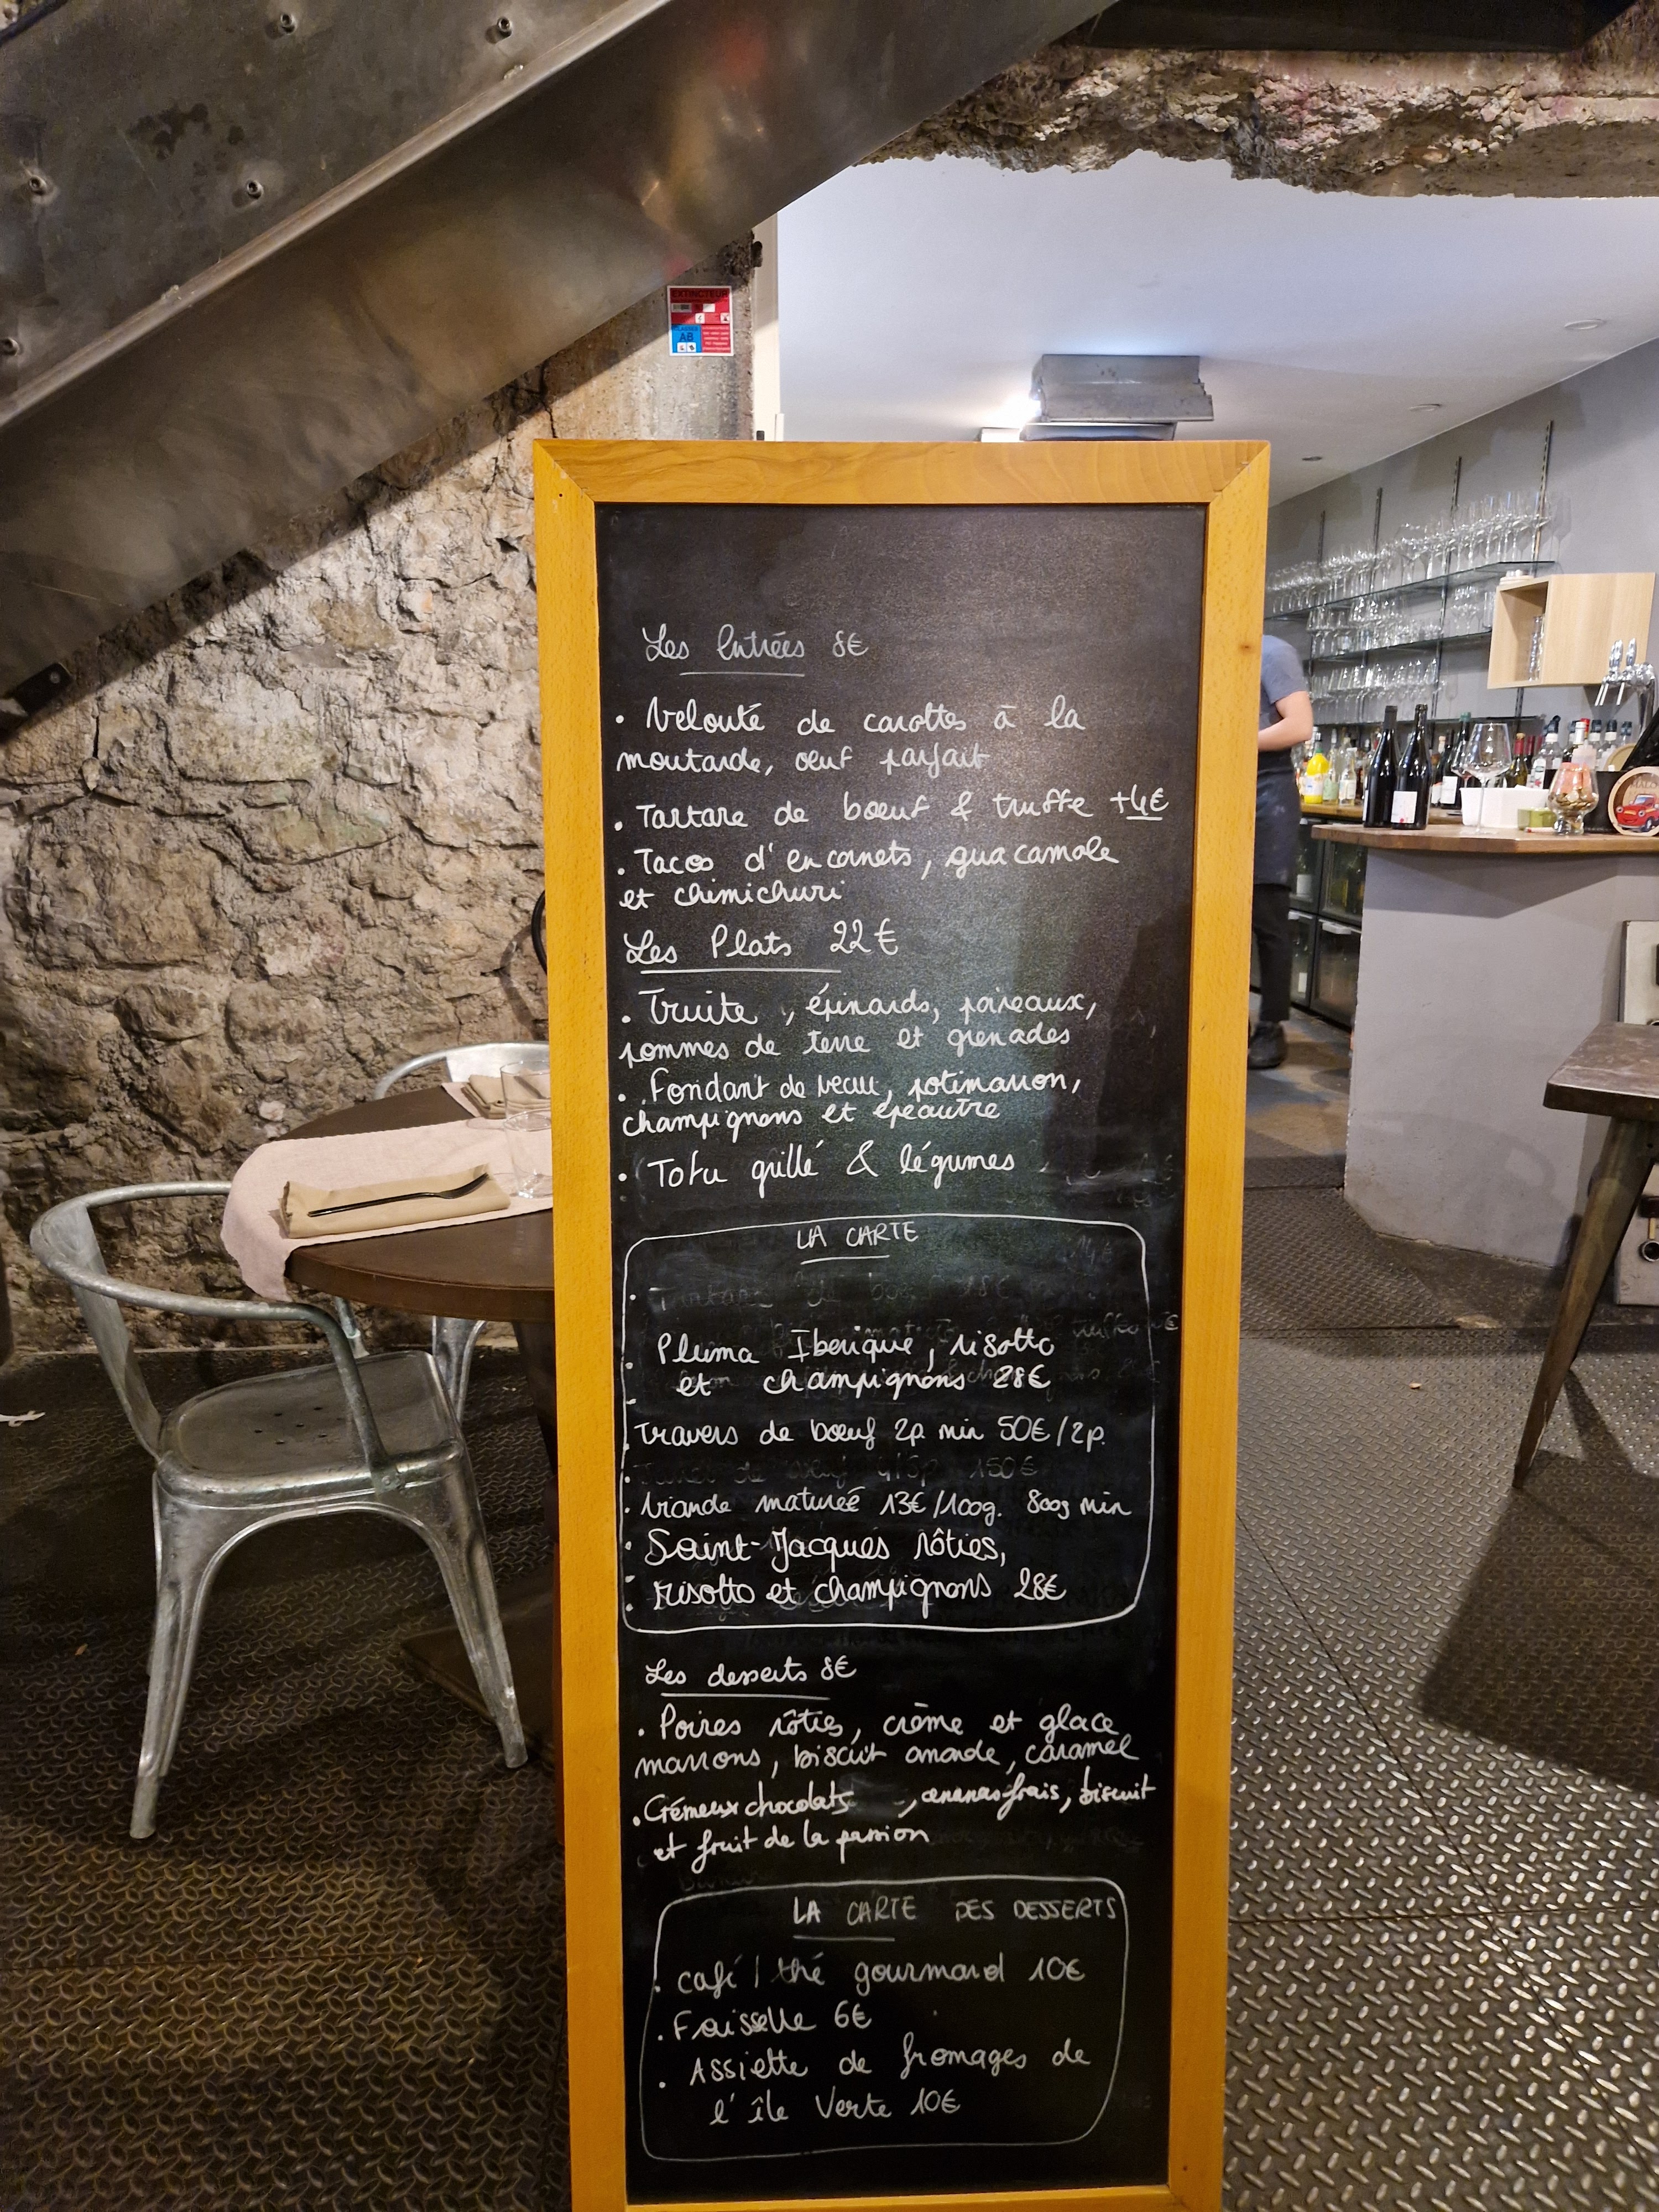 EXTINCTEUR
AB
Les Entrées 8€
• Velouté de carottes à la
moutarde, œuf parfait
• Tartare de bœuf & truffe +4€
• Tacos d'encornets, guacamole
et chimichuri
Les Plats 22€
• Truite , épinards, poireaux,
pommes de terre et grenades
• Fondant de veau, potimarron,
champignons et épeautre
• Tofu grillé & légumes
LA CARTE
• Pluma Iberique, risotto
et champignons 28€
• Travers de bœuf 2p min 50€/2p.
• Viande maturée 13€/100g. 800g min
• Saint-Jacques rôties,
risotto et champignons 28€
Les desserts 8€
• Poires rôties, crème et glace
marrons, biscuit amande, caramel
• Crémeux chocolats , ananas frais, biscuit
et fruit de la passion
LA CARTE DES DESSERTS
• café / thé gourmand 10€
• Faisselle 6€
• Assiette de fromages de
l'île Verte 10€